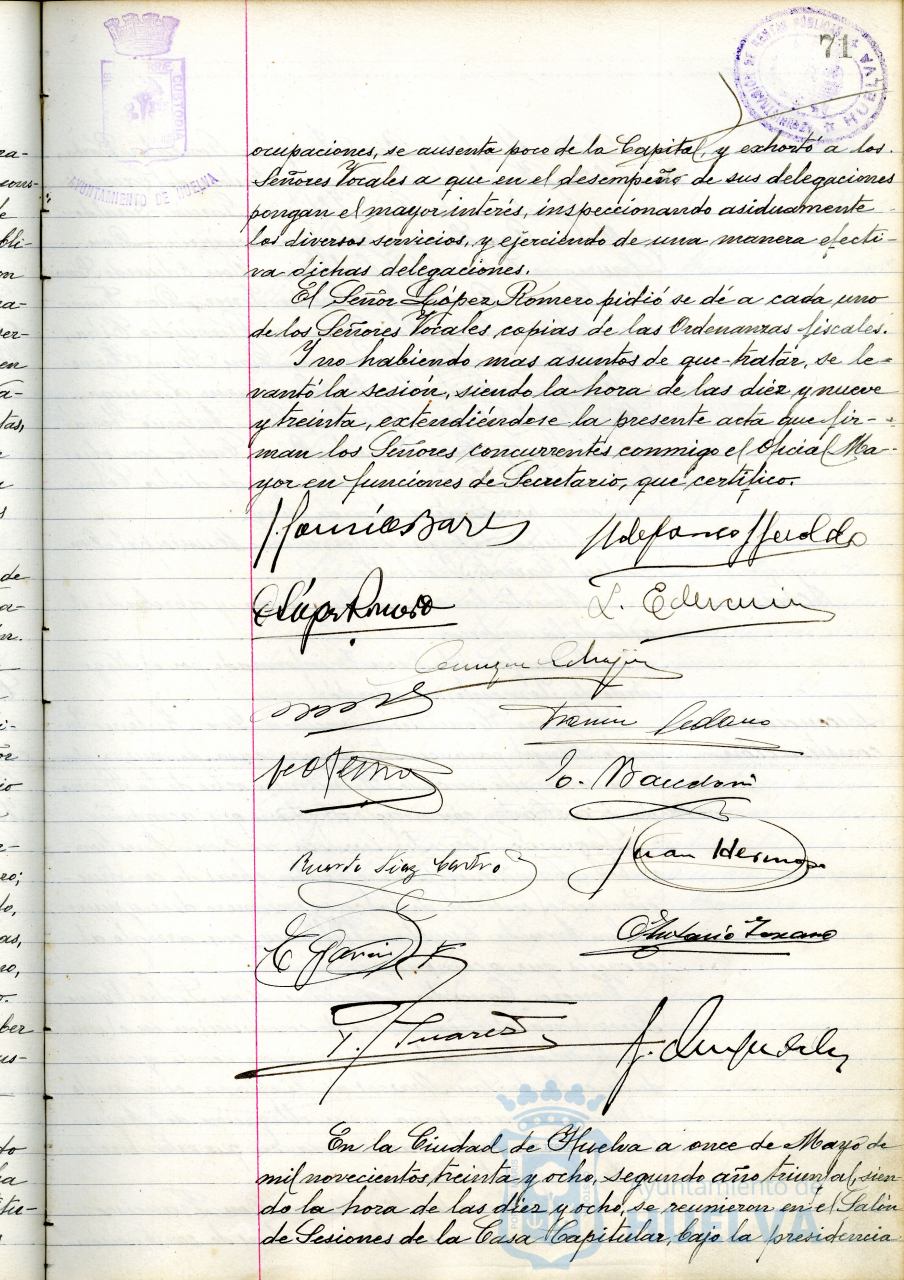 71
AYUNTAMIENTO DE HUELVA
ADMINISTRACIÓN DE RENTAS PÚBLICAS ★ HUELVA ★
ocupaciones, se ausenta poco de la Capital, y exhortó a los
Señores Vocales a que en el desempeño de sus delegaciones
pongan el mayor interés, inspeccionando asiduamente
los diversos servicios, y ejerciendo de una manera efecti-
va dichas delegaciones.
El Señor López Romero pidió se dé a cada uno
de los Señores Vocales copias de las Ordenanzas fiscales.
Y no habiendo mas asuntos de que tratár, se le-
vantó la sesión, siendo la hora de las diéz y nueve
y treinta, extendiéndose la presente acta que fir-
man los Señores concurrentes conmigo el Oficial Ma-
yor en funciones de Secretario, que certifico.
López Romero
Juan Hermoso
Ricardo Díaz Castro
E. García
T. Suarez
En la Ciudad de Huelva a once de Mayo de
mil novecientos treinta y ocho, segundo año triunfal, sien-
do la hora de las diéz y ocho, se reunieron en el Salón
de Sesiones de la Casa Capitular, bajo la presidencia
Ayuntamiento de
HUELVA